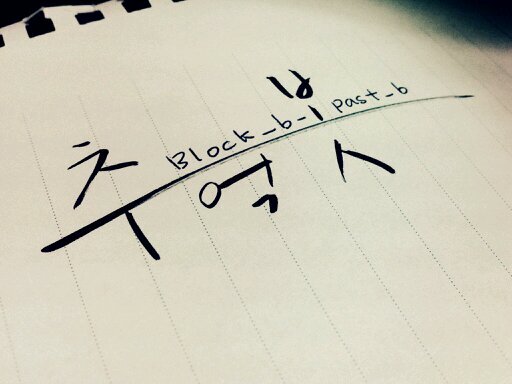 추억봇
Block_b_past_b